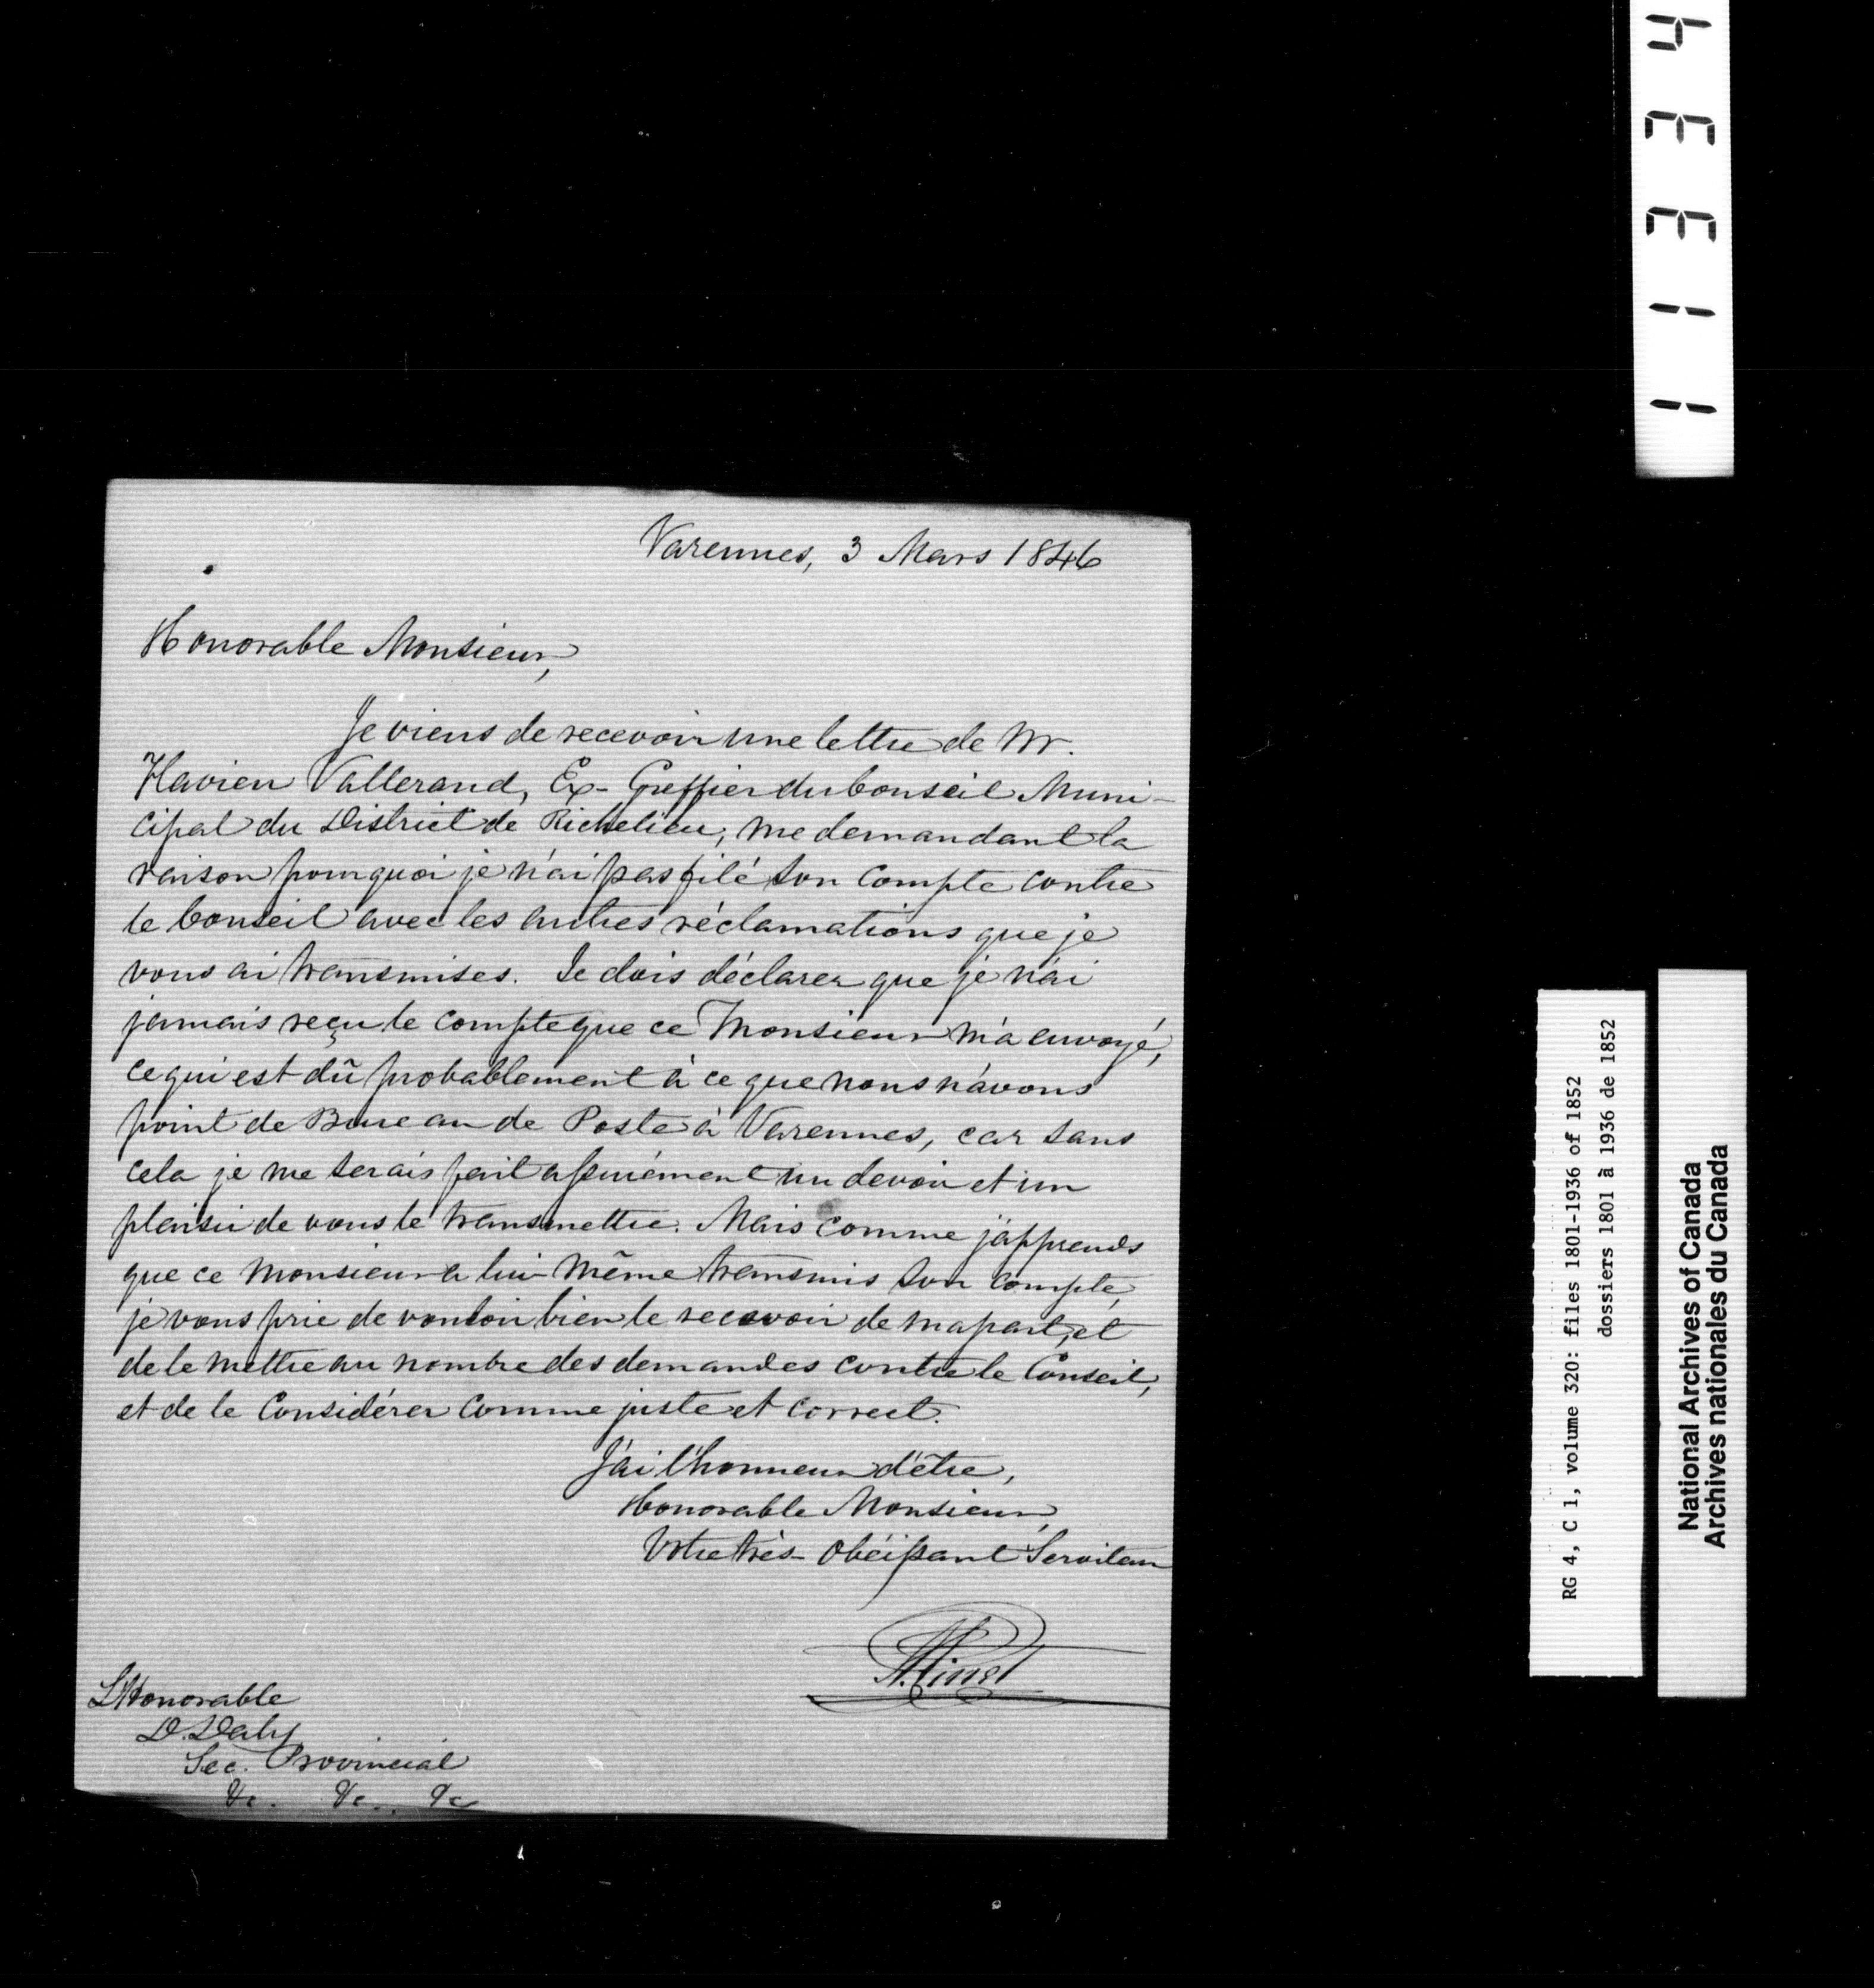 Varennes, 3 Mars 1846
Honorable Monsieur,
Je viens de recevoir une lettre de Mr.
Flavien Vallerand, Ex-Greffier du Conseil Muni-
cipal du District de Richelieu, me demandant la
raison pourquoi je n'ai pas filé son compte contre
le Conseil avec les autres réclamations que je
vous ai transmises. Je dois déclarer que je n'ai
jamais reçu le compte que ce Monsieur m'a envoyé,
ce qui est dû probablement à ce que nous n'avons
point de Bureau de Poste à Varennes, car sans
cela je me serais fait assurément un devoir et un
plaisir de vous le transmettre. Mais comme j'apprends
que ce Monsieur a lui-même transmis son compte,
je vous prie de vouloir bien le recevoir de ma part, et
de le mettre au nombre des demandes contre le Conseil,
et de le Considérer comme juste et correct.
J'ai l'honneur d'être,
Honorable Monsieur,
Votre très-Obéissant Serviteur
A. Pinet
L'Honorable
D. Daly
Sec. Provincial
&c. &c.. &c
11334
RG 4, C 1, volume 320: files 1801-1936 of 1852
dossiers 1801 à 1936 de 1852
National Archives of Canada
Archives nationales du Canada